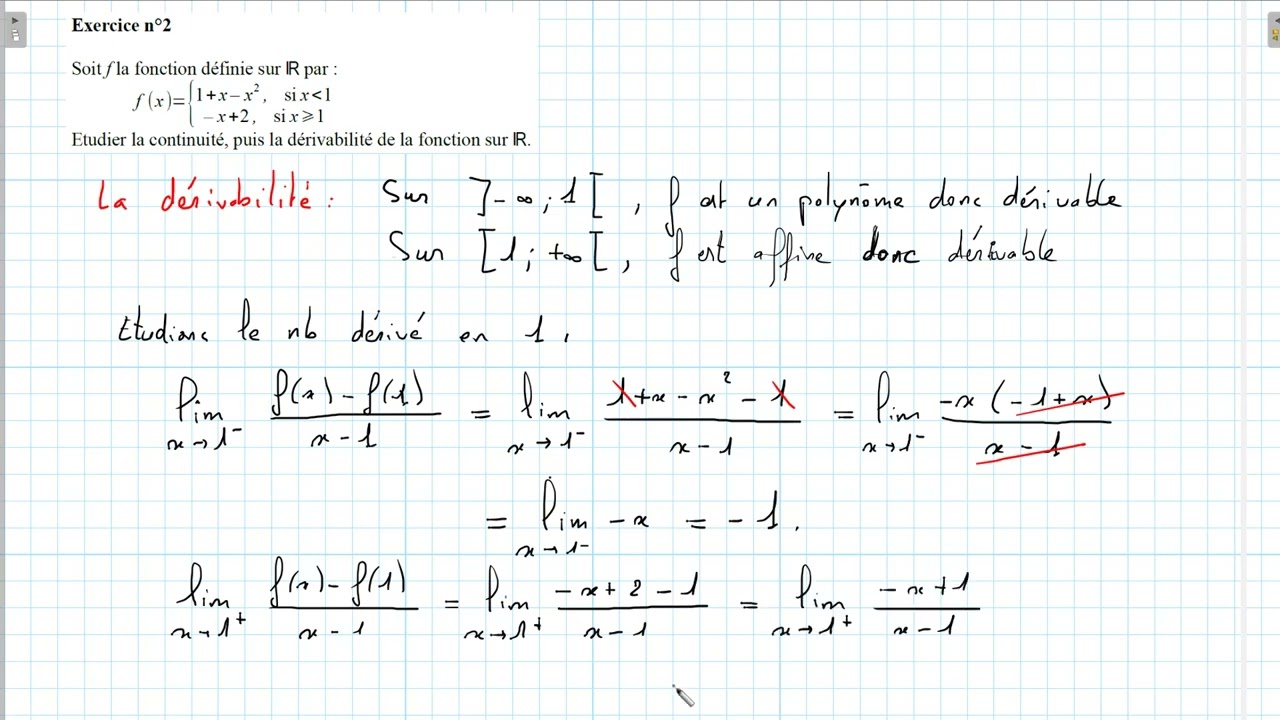 Exercice n°2
Soit f la fonction définie sur ℝ par :
f(x)={1+x−x², si x<1
−x+2, si x⩾1
Etudier la continuité, puis la dérivabilité de la fonction sur ℝ.
La dérivabilité : Sur ]-∞ ; 1[ , f est un polynôme donc dérivable
Sur [1 ; +∞[ , f est affine donc dérivable
Etudions le nb dérivé en 1.
lim x→1⁻ (f(x) - f(1))/(x - 1) = lim x→1⁻ (1 + x - x² - 1)/(x - 1) = lim x→1⁻ (-x (-1 + x))/(x - 1)
= lim x→1⁻ -x = -1.
lim x→1⁺ (f(x) - f(1))/(x - 1) = lim x→1⁺ (-x + 2 - 1)/(x - 1) = lim x→1⁺ (-x + 1)/(x - 1)